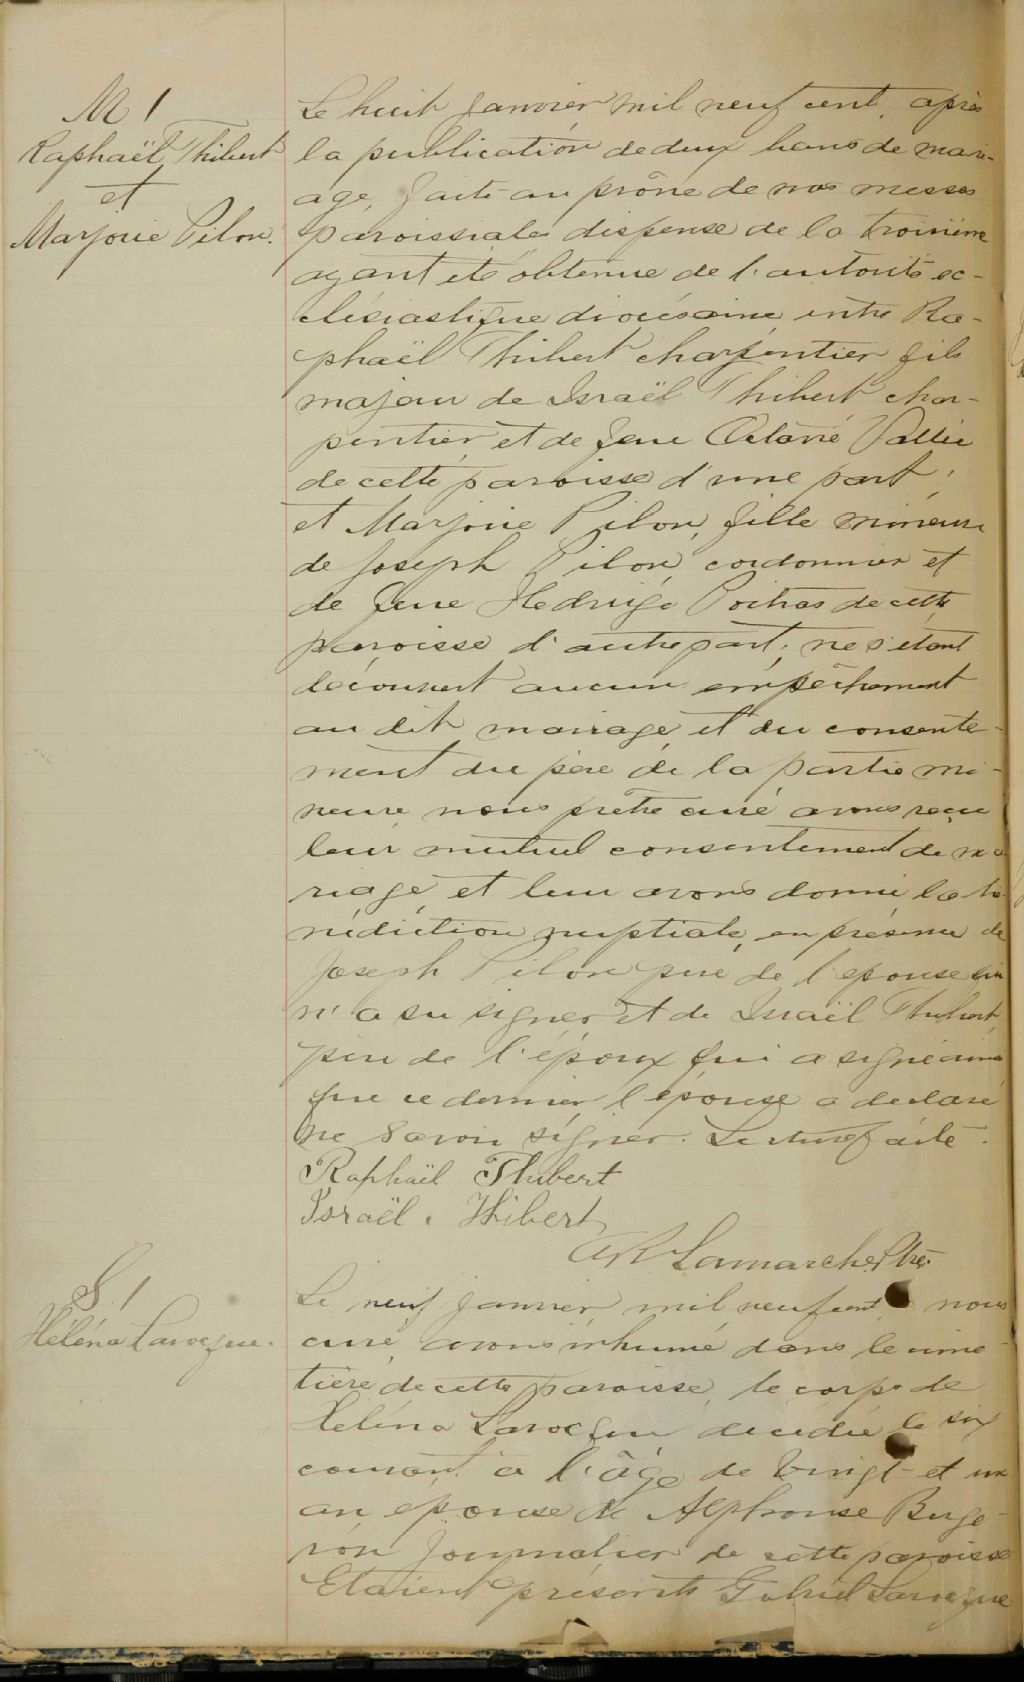 M 1
Raphaël Thibert
et
Marjorie Pilon.
Le huit Janvier mil neuf cent, après
la publication de deux bans de mari-
age, faite au prône de nos messes
paroissiales dispense de la troisième
ayant été obtenue de l'autorité ec-
clésiastique diocésaine, entre Ra-
phaël Thibert charpentier fils
majeur de Israël Thibert char-
pentier, et de feue Vallée
de cette paroisse d'une part,
et Marjorie Pilon, fille mineure
de Joseph Pilon cordonnier et
de feue Hedwige Poitras de cette
paroisse d'autre part; ne s'étant
découvert aucun empêchement
au dit mariage, et du consente-
ment du père de la partie mi-
neure nous prêtre curé avons reçu
leur mutuel consentement de ma
riage, et leur avons donné la bé-
nédiction nuptiale, en présence de
Joseph Pilon père de l'épouse qui
n'a su signer et de Israël Thibert,
père de l'époux qui a signé ainsi
que ce dernier, l'épouse a déclaré
ne savoir signer. Lecture faite.
Raphaël Thibert
Israël. Thibert
Lamarche Ptre.
S. 1
Héléna Larocque.
Le neuf Janvier mil neuf cent nous
curé, avons inhumé dans le cime-
tière de cette paroisse, le corps de
Héléna Larocque décédée le six
courant à l'âge de vingt-et un
an épouse de Alphonse Berge-
ron Journalier de cette paroisse
Etaient présents Gabriel Larocque